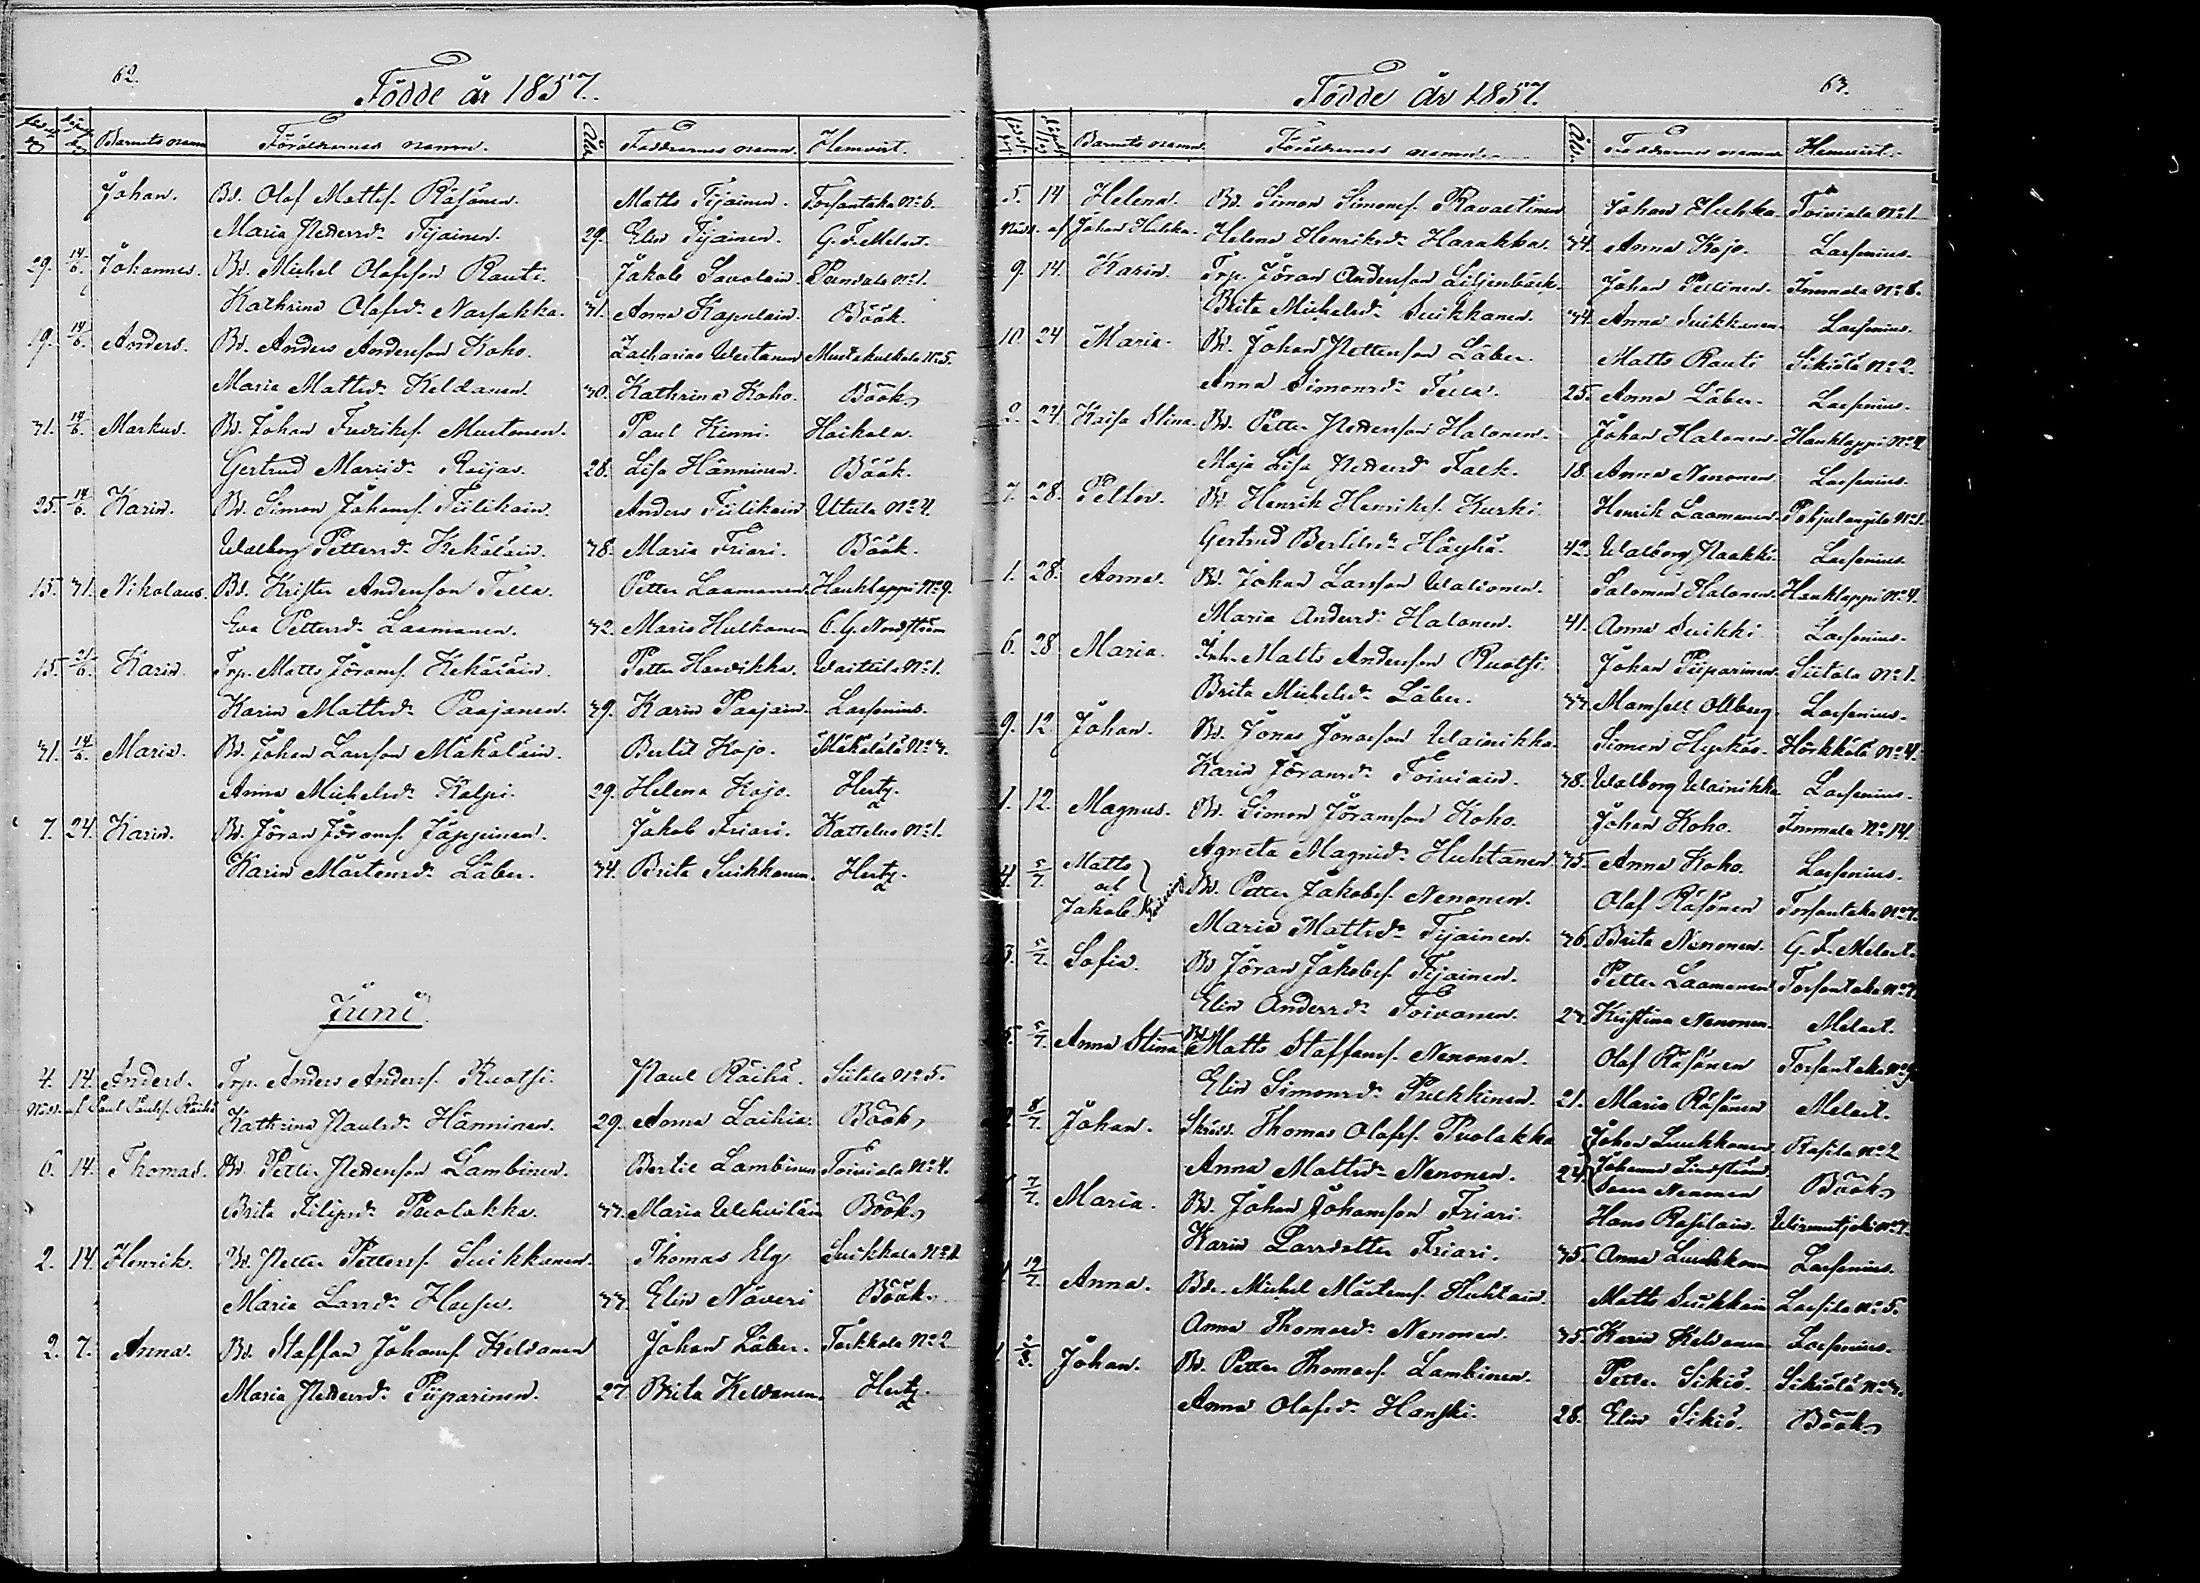 62.
Födde år 1857.
Barnets namn Föräldrarnes namn. Ålder Faddrarnes namn. Hemvist.
Johan. Bd. Olof Mattss. Räsänen. Matts Tijainen. Torsantaka No 6.
Maria Pettersdr Tijainen. 29. Elin Tijainen. G. F. Melart.
29. 14/6. Johannes. Bd. Michel Olofsson Rauti. Jakob Savolain. Pundala No 1.
Kathrina Olofsdr Narsakka. 31. Anna Kapulain. Böök.
19. 14/6. Anders. Bd. Anders Andersson Koho. Zacharias Wertanen Mustakulkula No 5.
Maria Mattsdr Keldanen. 30. Kathrina Koho. Böök.
31. 14/6. Markus. Bd. Johan Fredrikss. Mustonen. Paul Kinni. Haikala.
Gertrud Mariædr Raijas. 28. Lisa Hänninen. Böök.
25. 14/6. Karin. Bd. Simon Johanss. Tiilikain. Anders Tiilikain Utula No 4.
Walborg Pettersdr Kekäläin. 38. Maria Friari. Böök.
15. 31. Nikolaus. Bd. Krister Andersson Tella. Petter Laamanen. Hauklappi No 9.
Eva Pettersdr Laamanen. 32. Maria Hulkonen C. G. Nordström
15. 21/6. Karin. Trp. Matts Jöranss. Kekäläin. Petter Harvikka. Waittila No 1.
Karin Mattsdr Paajanen. 39. Karin Paajain. Larsenius.
31. 14/6. Maria. Bd. Johan Larsson Mäkäläin. Bertil Kojo. Mäkälälä No 3.
Anna Michelsdr Kalpi. 29. Helena Kojo. Hertz.
7. 24. Karin. Bd. Jöran Jöranss. Jäppinen. Jakob Friari. Kattelus No 1.
Karin Mårtensdr Läber. 34. Brita Suikkanen. Hertz.
Juni
4. 14. Anders. Trp. Anders Anderss. Ruotsi. Paul Räihä. Siitala No 5.
Nöd. af Paul Paulss. Räihä Kathrina Paulsdr Hänninen. 29. Anna Laihia. Böök,
6. 14. Thomas. Bd. Petter Pettersson Lambinen. Bertil Lambinen Toiviala No 4.
Brita Filipsdr Puolakka. 33. Maria Uckvilain Böök,
2. 14. Henrik. Bd. Petter Petterss. Suikkanen. Thomas Elg Suikkala No 1
Maria Larsdr Harju. 33. Elin Näveri Böök.
2. 7. Anna. Bd. Staffan Johanss. Keldanen Johan Läber. Torkkola No 2
Maria Pettersdr Piiparinen. 27. Brita Keldanen. Hertz.
63.
Födde år 1857.
Barnets namn. Föräldrarnes namn. Ålder Faddrarnes namn Hemvist.
5. 14 Helena. Bd. Simon Simonss. Ravattinen Johan Huhka Toiviala No 1
Nöd. af Johan Huhka. Helena Henriksdr Harakka. 34. Anna Kojo. Larsenius.
9. 14. Karin. Trp. Jöran Andersson Liljenbäck. Johan Pellinen. Immala No 8.
Brita Michelsdr Suikkanen. 34. Anna Suikkanen. Larsenius.
10. 24 Maria. Bd. Johan Pettersson Läber. Matts Rauti Sikiölä No 2.
Anna Simonsdr Tella. 25. Anna Läber. Larsenius.
2. 24. Kaisa Stina. Bd. Petter Pettersson Halonen. Johan Halonen. Hauklappi No 4
Maja Lisa Pettersdr Falk. 18. Anna Nenonen Larsenius.
7. 28. Petter. Bd. Henrik Henrikss. Kurki. Henrik Laamanen. Pohjalangila No 1.
Gertrud Bertilsdr Häyhä. 42. Walborg Naakki. Larsenius.
1. 28. Anna. Bd. Johan Larsson Waltonen. Salomon Halonen. Hauklappi No 4.
Maria Andersdr Halonen. 41. Anna Suikki. Larsenius.
6. 28 Maria. Inh. Matts Andersson Ruotsi. Johan Piiparinen. Siitala No 1.
Brita Michelsdr Läber. 33. Mamsell Ollberg. Larsenius.
9. 12. Johan. Bd. Jonas Jonasson Wainikka. Simon Hyrkäs. Hörkkölä No 4.
Karin Jöransdr Toiviain. 38. Walborg Wainikka Larsenius.
1. 12. Magnus. Bd. Simon Jöransson Koho. Johan Koho. Immala No 14.
Agneta Magnidr Huhtanen 35. Anna Koho. Larsenius.
4. 5/7. Matts och Jakob. Bd. Petter Jakobss. Nenonen. Olof Räsänen Torsantaka No 7.
Maria Mattsdr Tijainen. 36. Brita Nenonen. G. F. Melart.
3. 5/7. Sofia. Bd Jöran Jakobss. Tijainen. Petter Laamanen Torsantaka No 7.
Elin Andersdr Toivanen. 23. Kristina Nenonen. Melart.
5. 5/7. Anna Stina Bd. Matts Staffanss. Nenonen. Olof Räsänen Torsantaka No 9
Elin Simonsdr Pulkkinen. 21. Maria Räsänen Melart.
8/7. Johan. Skrädd. Thomas Olofss. Puolakka Johan Luukkonen Rasila No 2
Anna Mattsdr Nenonen. 24. Johanna Lindström Böök,
Nenonen
7/7. Maria. Bd. Johan Johansson Friari. Hans Rasilain. Wirmutjoki No 7.
Karin Larsdotter Friari. 35. Anna Luukkonen Larsenius.
19/7. Anna. Bds. Michel Mårtenss. Huhtain. Matts Suikkain Larsila No 5.
Anna Thomasdr Nenonen. 35. Karin Keldanen Larsenius.
2/8. Johan. Bd. Petter Thomass. Lambinen. Petter Sikiö. Sikiölä No 3.
Anna Olofsdr Hanski. 28. Elin Sikiö. Böök,